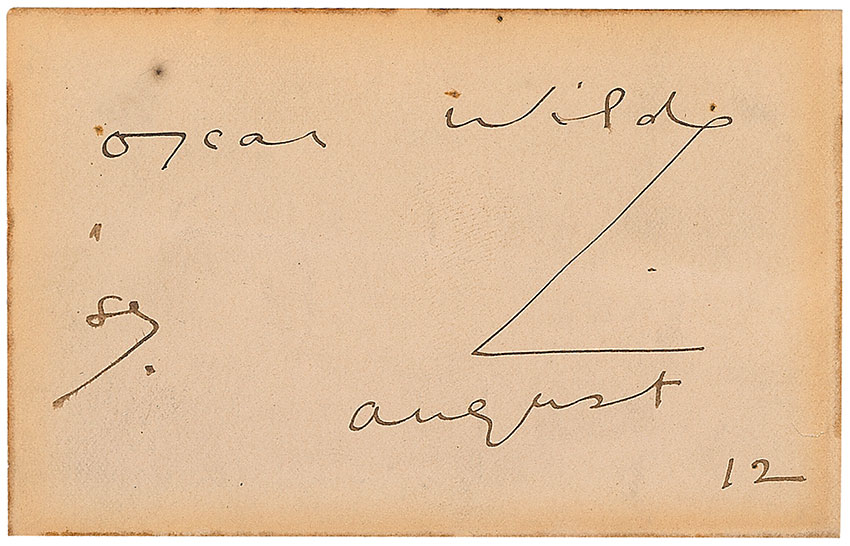 Oscar Wilde
89.
august
12